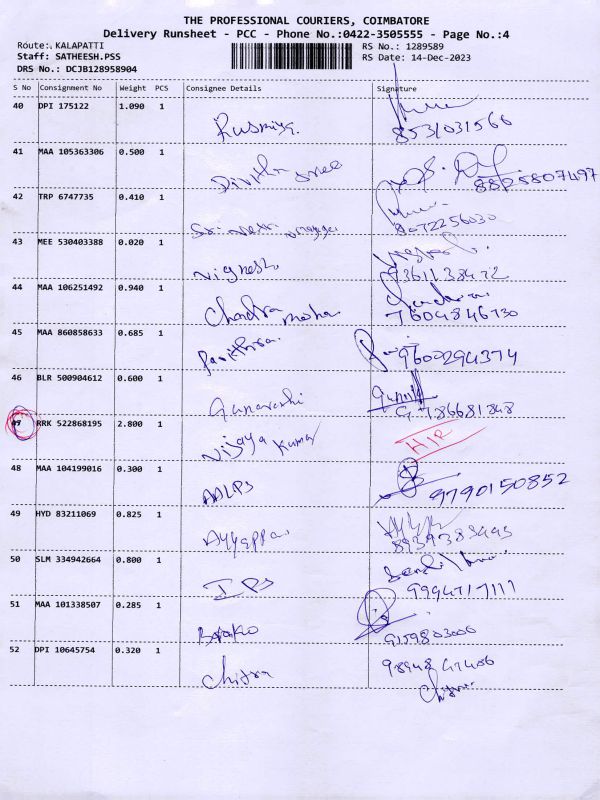 THE PROFESSIONAL COURIERS, COIMBATORE
Delivery Runsheet - PCC - Phone No.:0422-3505555 - Page No.:4
Route: KALAPATTI RS No.: 1289589
Staff: SATHEESH.PSS RS Date: 14-Dec-2023
DRS No.: DCJB128958904
S No Consignment No Weight PCS Consignee Details Signature
40 DPI 175122 1.090 1
8531031566
41 MAA 105363306 0.500 1
Divitha sree
8825807497
42 TRP 6747735 0.410 1
43 MEE 530403388 0.020 1
Vignesh
44 MAA 106251492 0.940 1
Chandra mohan
7604846730
45 MAA 860858633 0.685 1
Pavithra
9600294374
46 BLR 500904612 0.600 1
47 RRK 522868195 2.800 1
Vijaya Kumar
48 MAA 104199016 0.300 1
AALPS 9790150852
49 HYD 83211069 0.825 1
Ayyappa
50 SLM 334942664 0.800 1
IPS
51 MAA 101338507 0.285 1
9159803006
52 DPI 10645754 0.320 1
Chitra